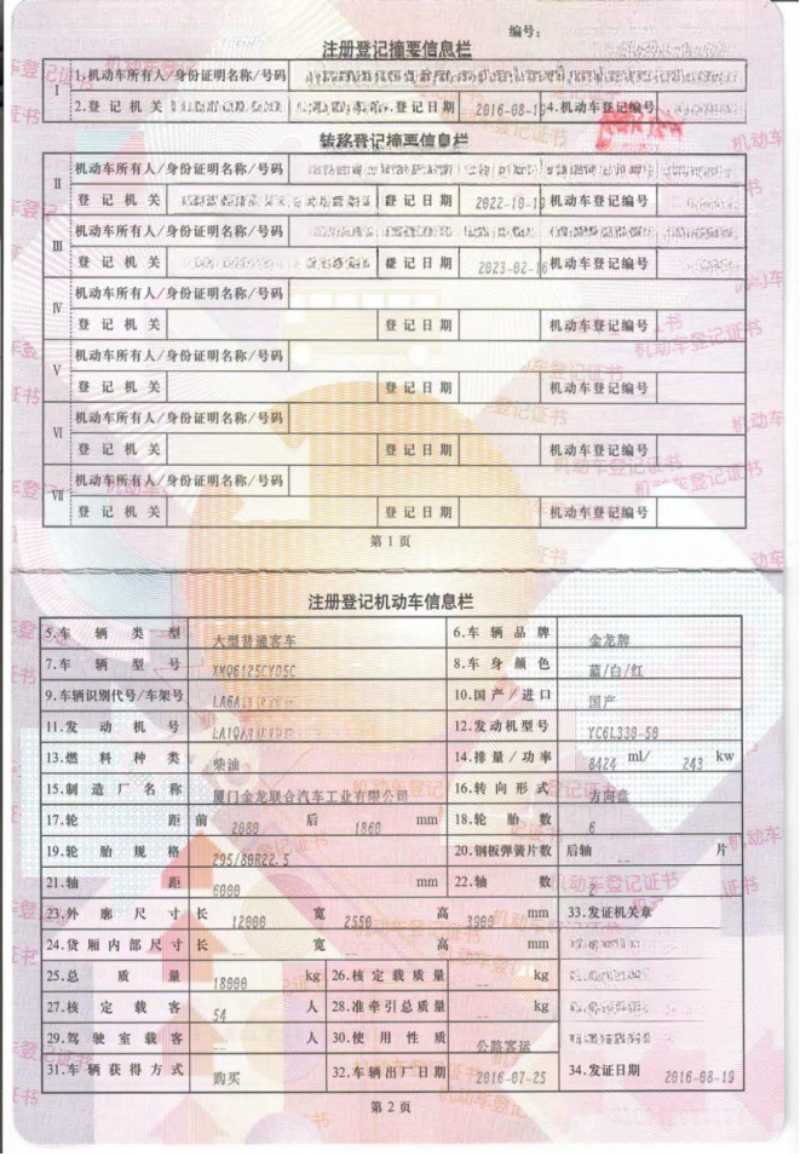 编号:
注册登记摘要信息栏
I 1.机动车所有人/身份证明名称/号码
2.登记机关 3.登记日期 2016-08-19 4.机动车登记编号
转移登记摘要信息栏
II 机动车所有人/身份证明名称/号码
登记机关 登记日期 2022-10-1 机动车登记编号
III 机动车所有人/身份证明名称/号码
登记机关 登记日期 2023-02-16 机动车登记编号
IV 机动车所有人/身份证明名称/号码
登记机关 登记日期 机动车登记编号
V 机动车所有人/身份证明名称/号码
登记机关 登记日期 机动车登记编号
VI 机动车所有人/身份证明名称/号码
登记机关 登记日期 机动车登记编号
VII 机动车所有人/身份证明名称/号码
登记机关 登记日期 机动车登记编号
第1页
注册登记机动车信息栏
5.车辆类型 大型普通客车 6.车辆品牌 金龙牌
7.车辆型号 XMQ6125CYD5C 8.车身颜色 蓝/白/红
9.车辆识别代号/车架号 LA6A1 10.国产/进口 国产
11.发动机号 LA1QA 12.发动机型号 YC6L330-50
13.燃料种类 柴油 14.排量/功率 8424 ml/ 243 kw
15.制造厂名称 厦门金龙联合汽车工业有限公司 16.转向形式 方向盘
17.轮距 前 2080 后 1860 mm 18.轮胎数 6
19.轮胎规格 295/80R22.5 20.钢板弹簧片数 后轴 -- 片
21.轴距 6000 mm 22.轴数 2
23.外廓尺寸 长 12000 宽 2550 高 3900 mm 33.发证机关章
24.货厢内部尺寸 长 -- 宽 -- 高 -- mm
25.总质量 18000 kg 26.核定载质量 -- kg
27.核定载客 54 人 28.准牵引总质量 -- kg
29.驾驶室载客 -- 人 30.使用性质 公路客运
31.车辆获得方式 购买 32.车辆出厂日期 2016-07-25 34.发证日期 2016-08-19
第2页